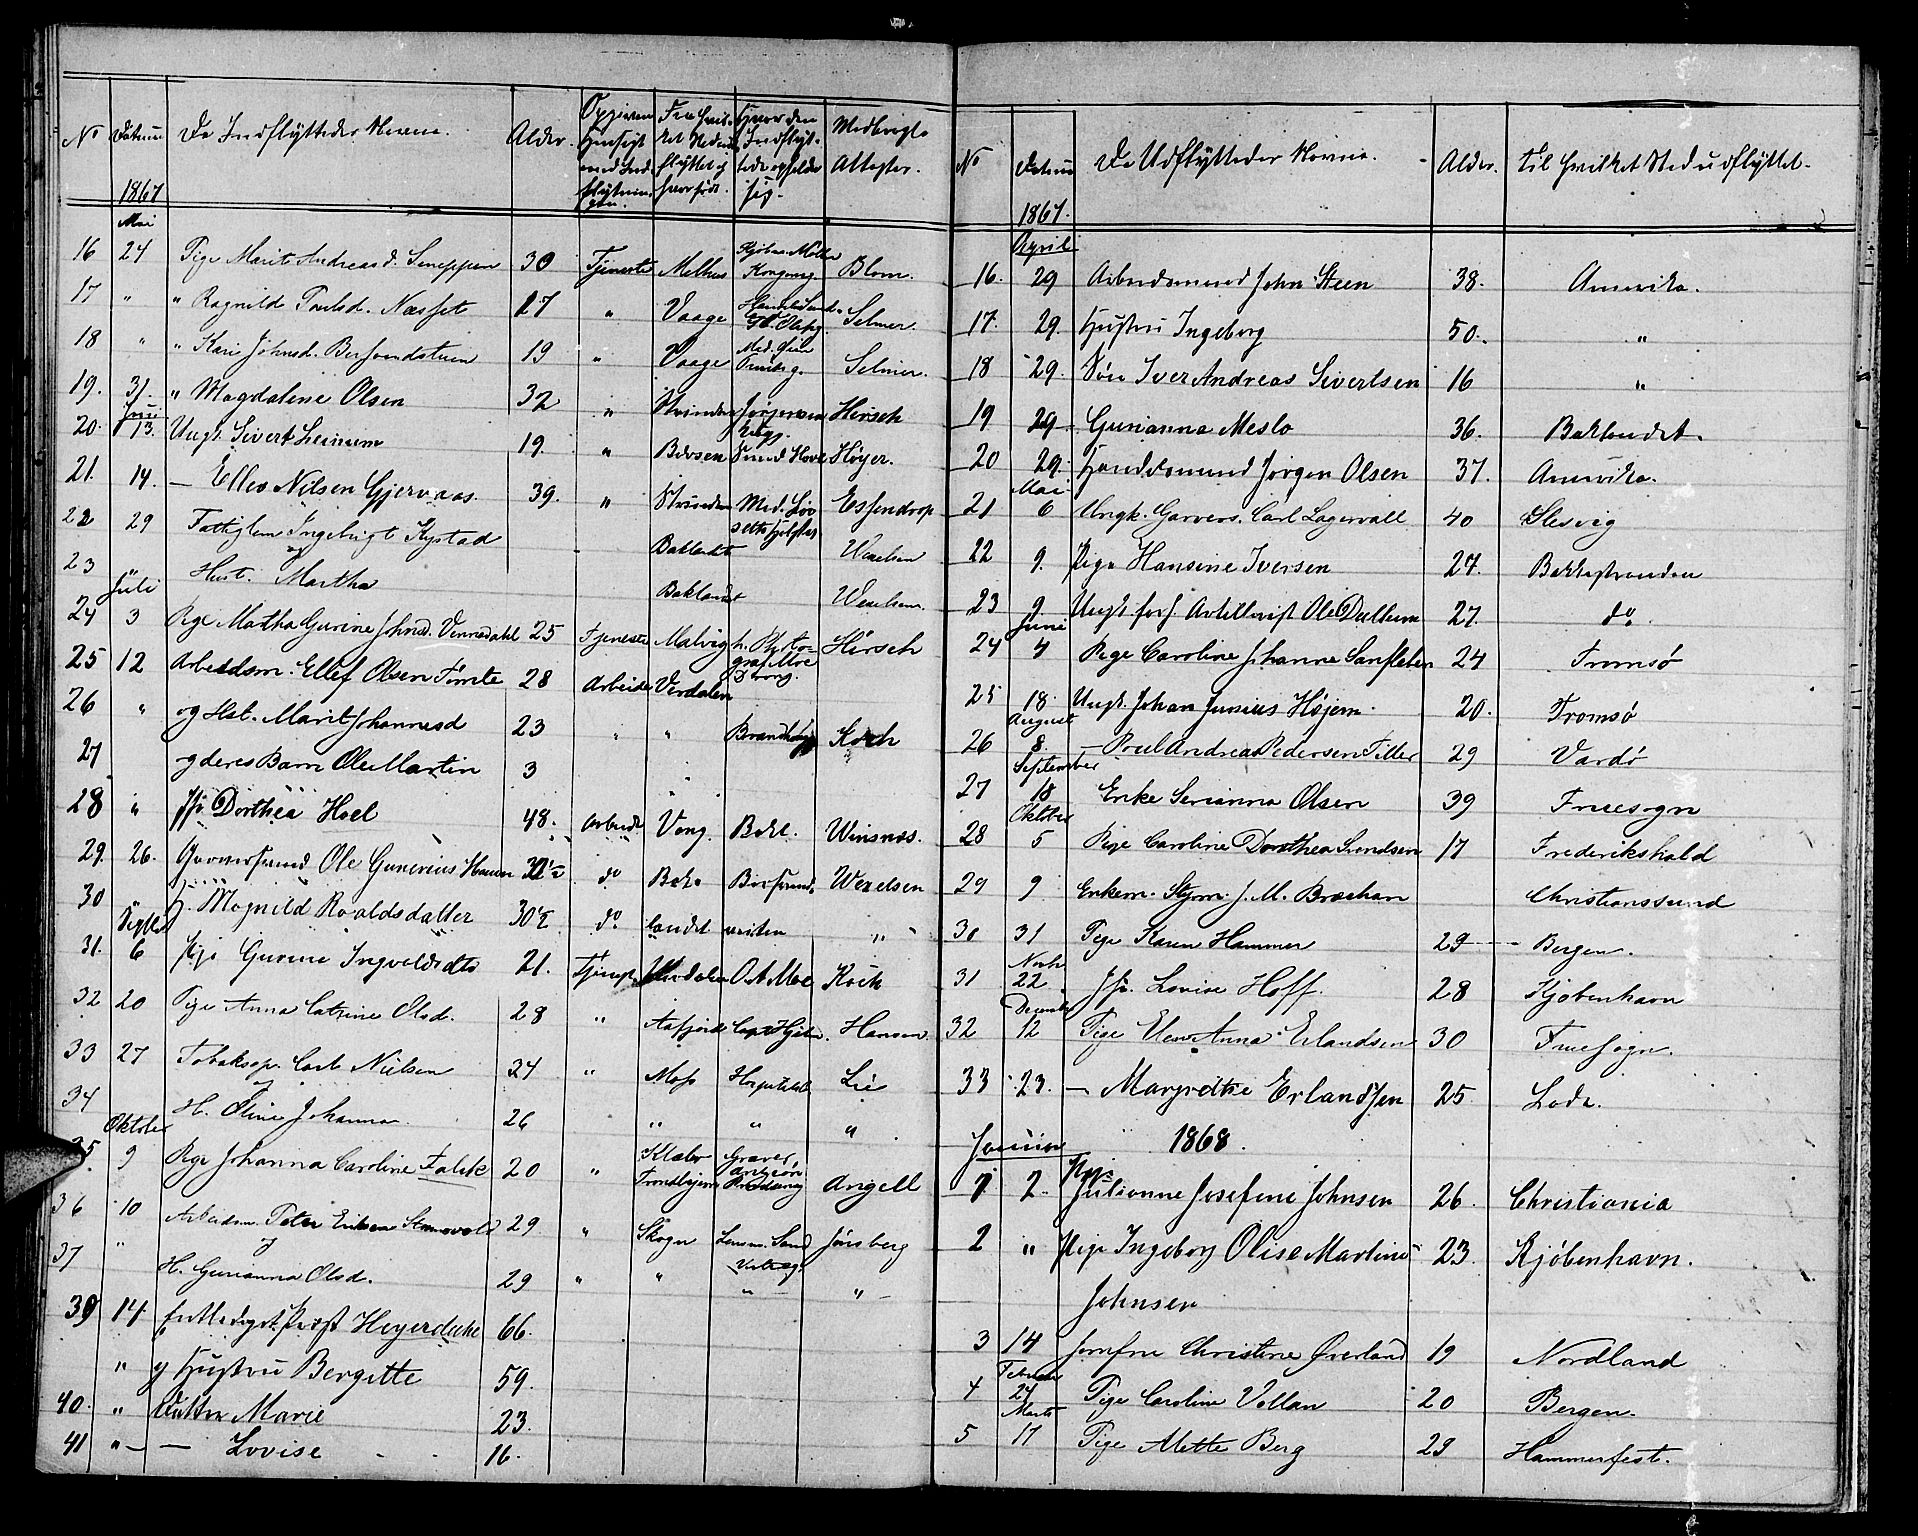 No Datum 1867 De Indflyttedes Navne. Alder. Opgiven Hensigt med Indflytningen. Fra hvilket Sted indflyttet og hvor født. Hvor den Indflyttede opholder sig. Medbragte Attester.
Mai
16 24 Pige Marit Andreasd. 30 Tjeneste Melhus Kjøbm. Møller Kongensg. Blom.
17 " " Ragnild Poulsd. Næsset 27 " Vaage Selmer.
18 " " Kari Johnsd. 19 " Vaage Selmer.
19. 31 " Magdalene Olsen 32 " Strinden Jørgensen Hirsch
Juni
20. 13. Ungk. Sivert 19. " Børsen Høyer.
21. 14. — Ellev Nilsen Gjervaas. 39. " Strinden Essendrop
22 29 Fattiglem Ingebrigt Kystad Baklandet Wexelsen
23 og Hust. Martha Baklandet Wexelsen.
Juli
24 3 Pige Martha Gurine Johnsd. Vennedahl 25 Tjeneste Malvig Hirsch
25 12 Arbeidsm. Ellef Olsen Tømte 28 Arbeide Verdalen
26 " og Hst. Marit Johannesd 23 " " Koch
27 og deres Barn Ole Martin 3 "
28 " Jfr Dorthea Hoel 48. Arbeide Vang. Bakl. Winsnæs.
29. 26. Ole Gunerius 32½ do Bak- Wexelsen
30 H. Magnild Roaldsdatter 30½ do landet veiten "
Septbr
31. 6 Pige Gurine Ingvaldsdtr 21. Tjeneste Verdalen O. A. Moe Koch
32 20 Pige Anna Catrine Olsd. 28 " Aafjord Hansen
33 27 Tobakssp. Carl Nielsen 24 " Moss Hospitalsl. Lie
34 og H. Oline Johanna. 26 " " "
Oktober
35. 9 Pige Johanna Caroline Falck 20 " Klæbo Trondhjem Graver Angell
36 10 Arbeidsm. Peter Eriksen 29. " Skogn Lensm. Sand Jönsberg
37 " og H. Gurianna Olsd. 29 " " " "
39 14 Præst Heyerdahl 66.
" og Hustru Bergitte 59.
40. " Datter Marie 23.
41 " — Lovise 16.
No Datum 1867. De Udflyttedes Navne. Alder. Til hvilket Sted udflyttet.
April
16. 29 Arbeidsmand John Steen 38. Amerika.
17. 29. Hustru Ingeborg 50. "
18 29. Søn Iver Andreas Sivertsen 16 "
19 29 Gurianna Meslo 36. Baklandet.
20 29. Handelsmand Jørgen Olsen 37. Amerika.
Mai
21 6 Ungk. Garvers. Carl Lagervall 40 Slesvig
22 9. Pige Hansine Iversen 27. Bakkestranden
23 9 Ungk. forh. Artillerist Ole Dalhum 27. do
Juni
24 4 Pige Caroline Johanne 24 Tromsø
25 18. Ungk. Johan Junius Højem 20. Tromsø
August
26 8. — Poul Andreas Pedersen Tiller 29 Vardø
September
27 18 Enke Serianna Olsen 39 Fruesogn
Oktober
28 5 Pige Caroline Dorothea Svendsen 17 Frederikshald
29 9 Enkem. Styrm. J. M. Christianssund
30 31 Pige Karen Hammer 29 Bergen.
Novbr
31 22. Jfr. Lovise Hoff. 28 Kjøbenhavn
December
32 12 Pige Elen Anna Erlandsen 30 Fruesogn.
33 23. — Margrethe Erlandsen 25. Lade.
Januar 1868.
1 2. Pige Julianne Josefine Johnsen 26. Christiania
2 " Pige Ingeborg Olise Martine 23. Kjøbenhavn.
Johnsen
3 14 Jomfru Christine Øverland 19 Nordland
Februar
4 24 Pige Caroline Vollan 20 Bergen.
Marts
5 17 Pige Mette Berg 29 Hammerfest.